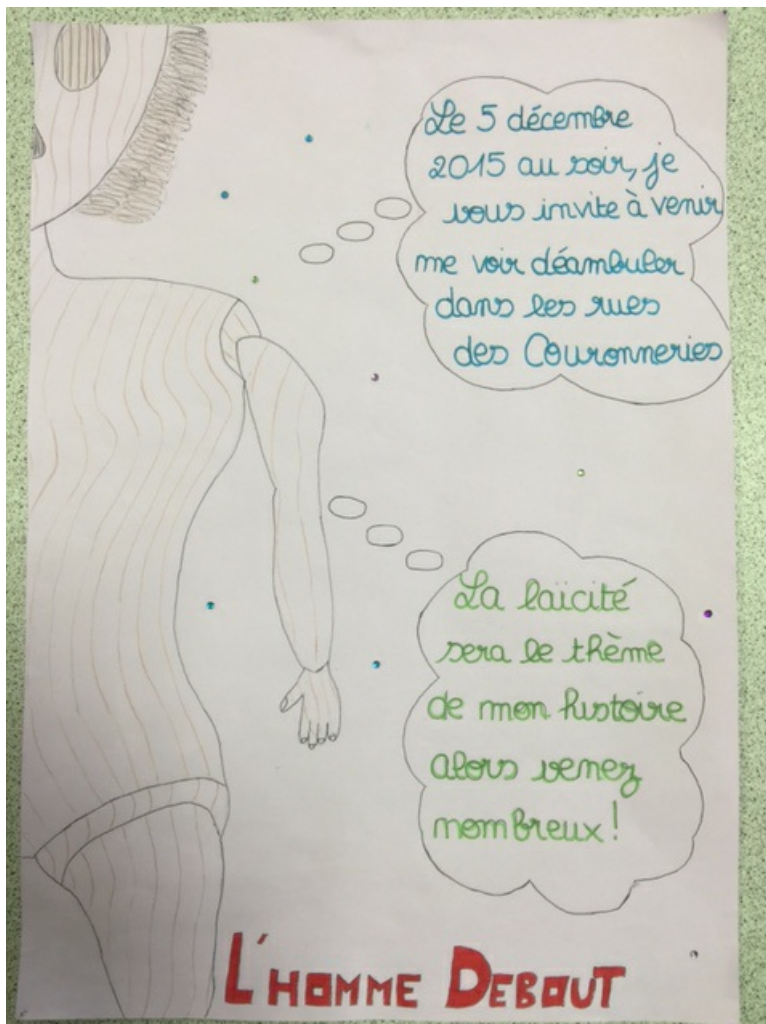 Le 5 décembre
2015 au soir, je
vous invite à venir
me voir déambuler
dans les rues
des Couronneries
La laïcité
sera le thème
de mon histoire
alors venez
nombreux !
L'HOMME DEBOUT